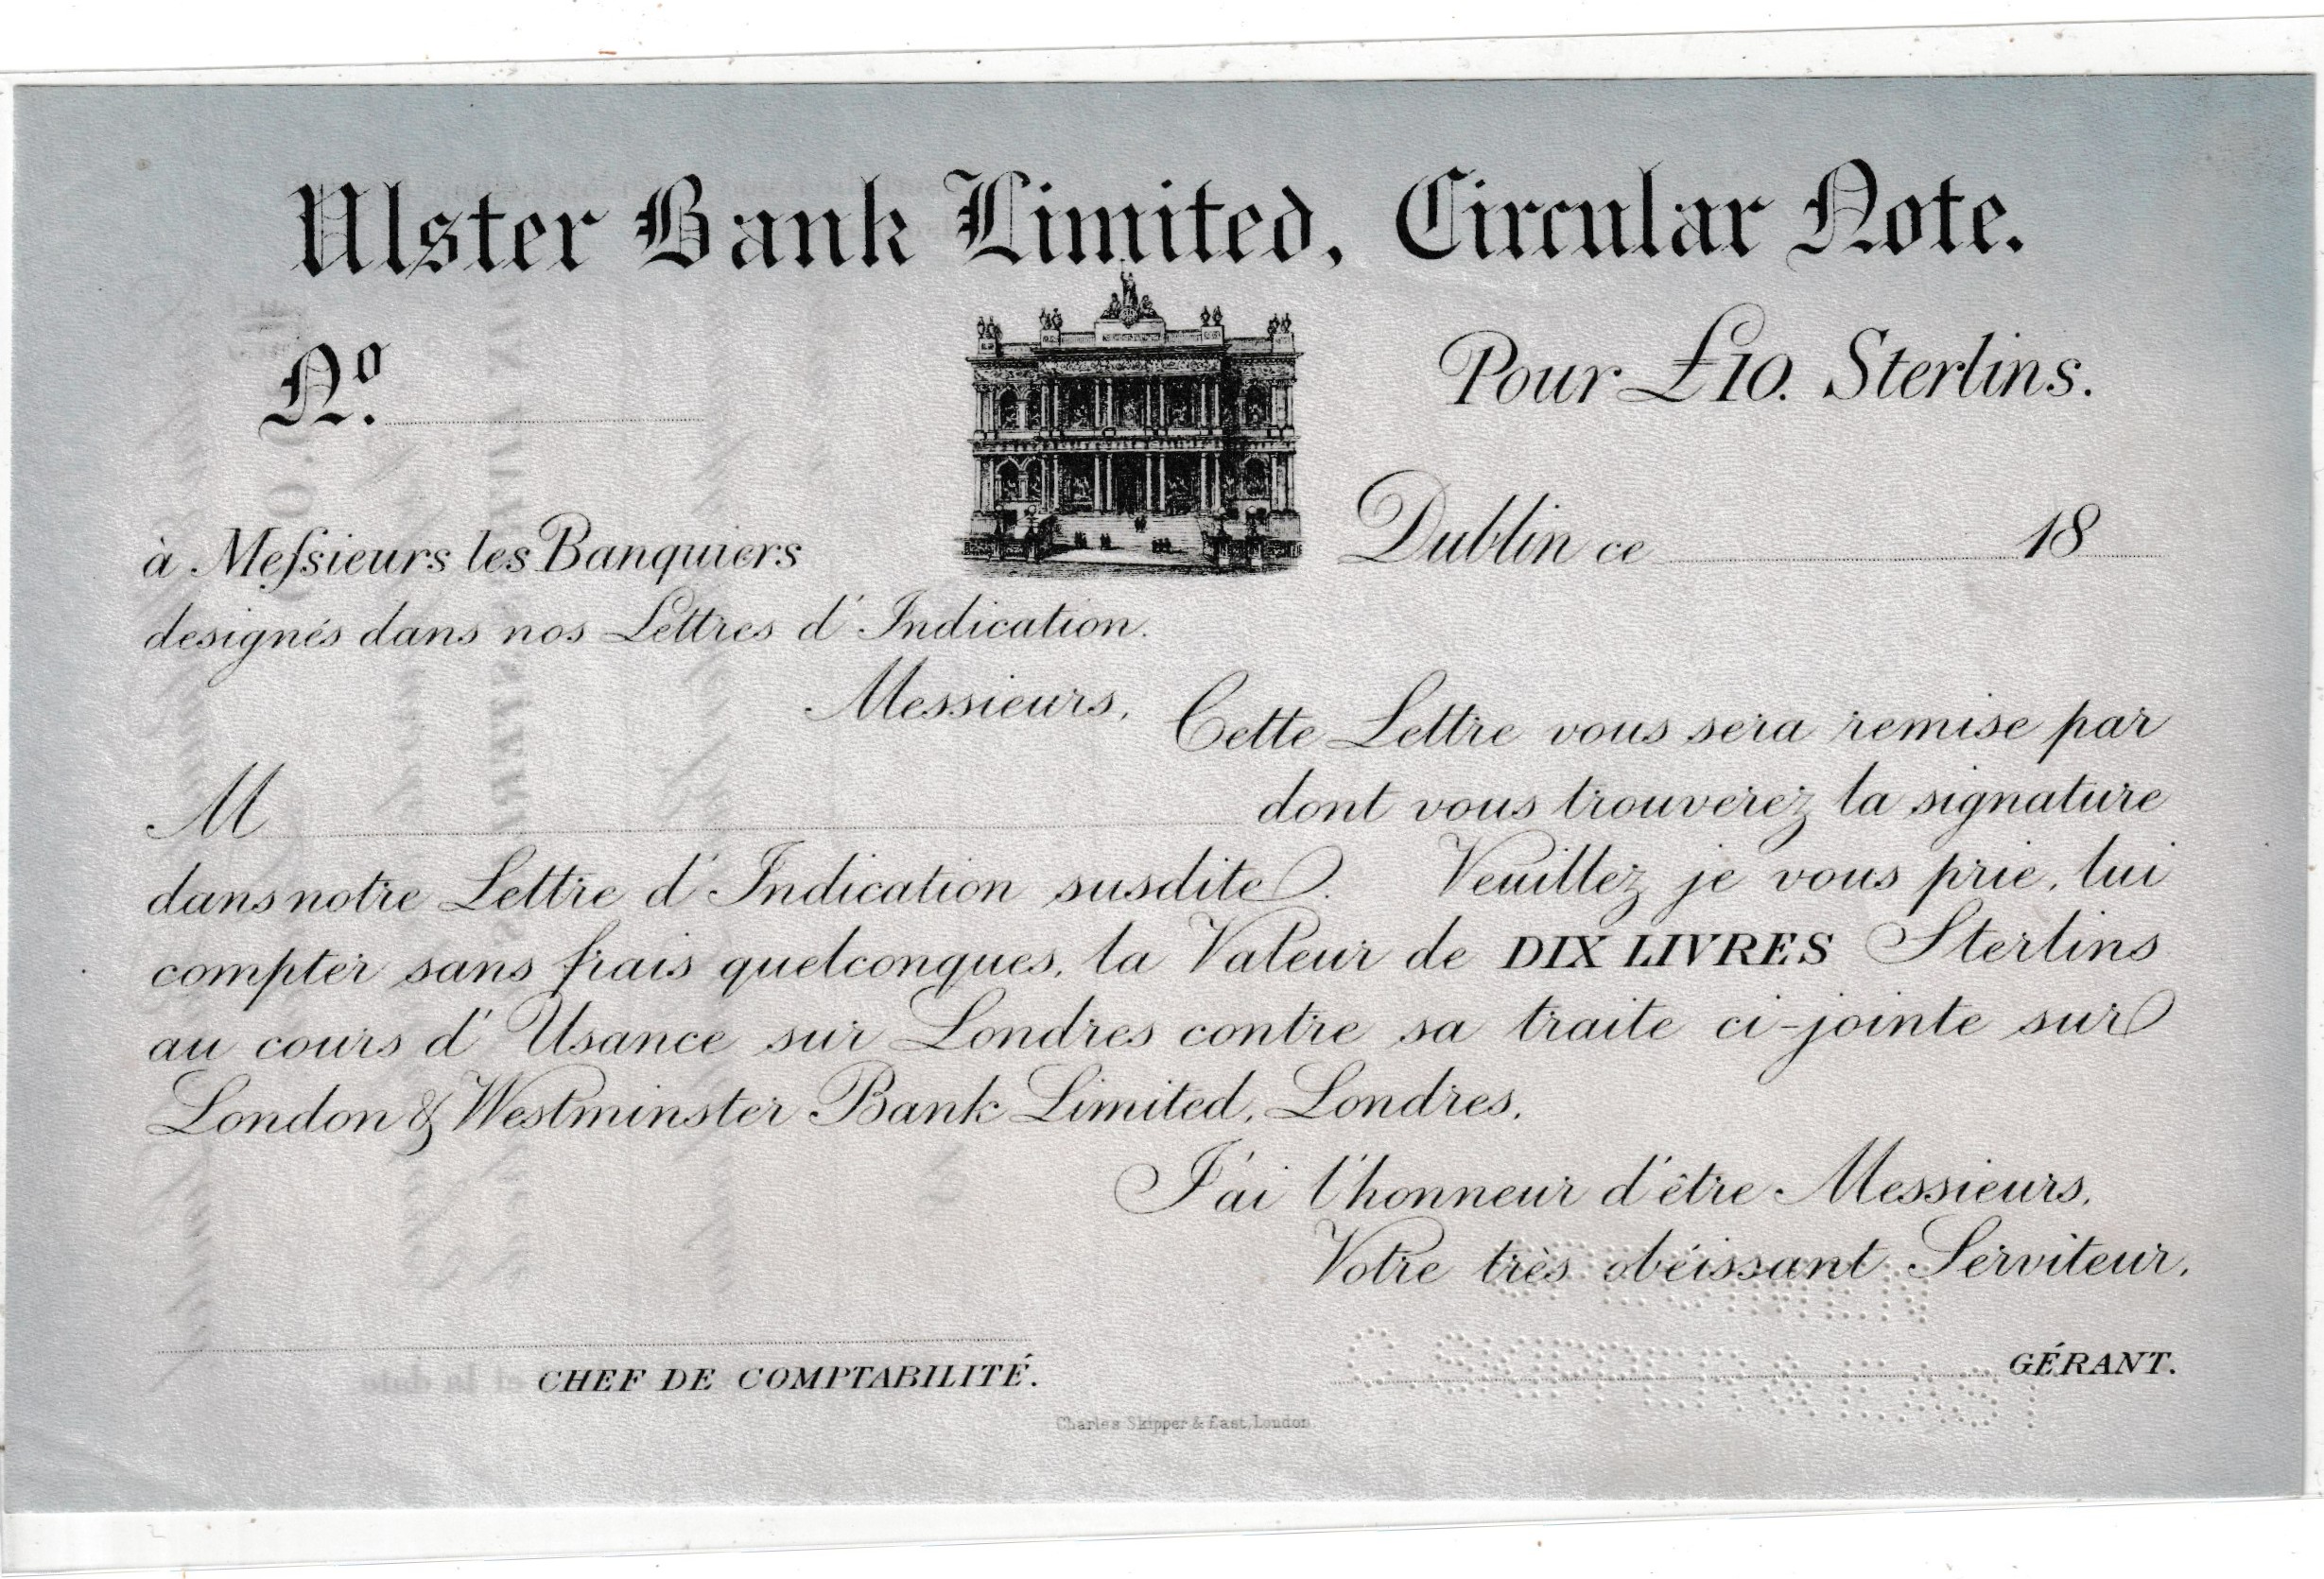 Ulster Bank Limited, Circular Note.
No.
Pour £10. Sterlins.
Dublin ce 18
à Meſsieurs les Banquiers
designés dans nos Lettres d'Indication.
Messieurs,
Cette Lettre vous sera remise par
M dont vous trouverez la signature
dans notre Lettre d'Indication susdite. Veuillez je vous prie, lui
compter sans frais quelconques, la Valeur de DIX LIVRES Sterlins
au cours d'Usance sur Londres contre sa traite ci-jointe sur
London & Westminster Bank Limited, Londres.
J'ai l'honneur d'être Messieurs,
Votre très obéissant Serviteur,
SPECIMEN
C. SKIPPER & EAST
CHEF DE COMPTABILITÉ.
GÉRANT.
Charles Skipper & East, London